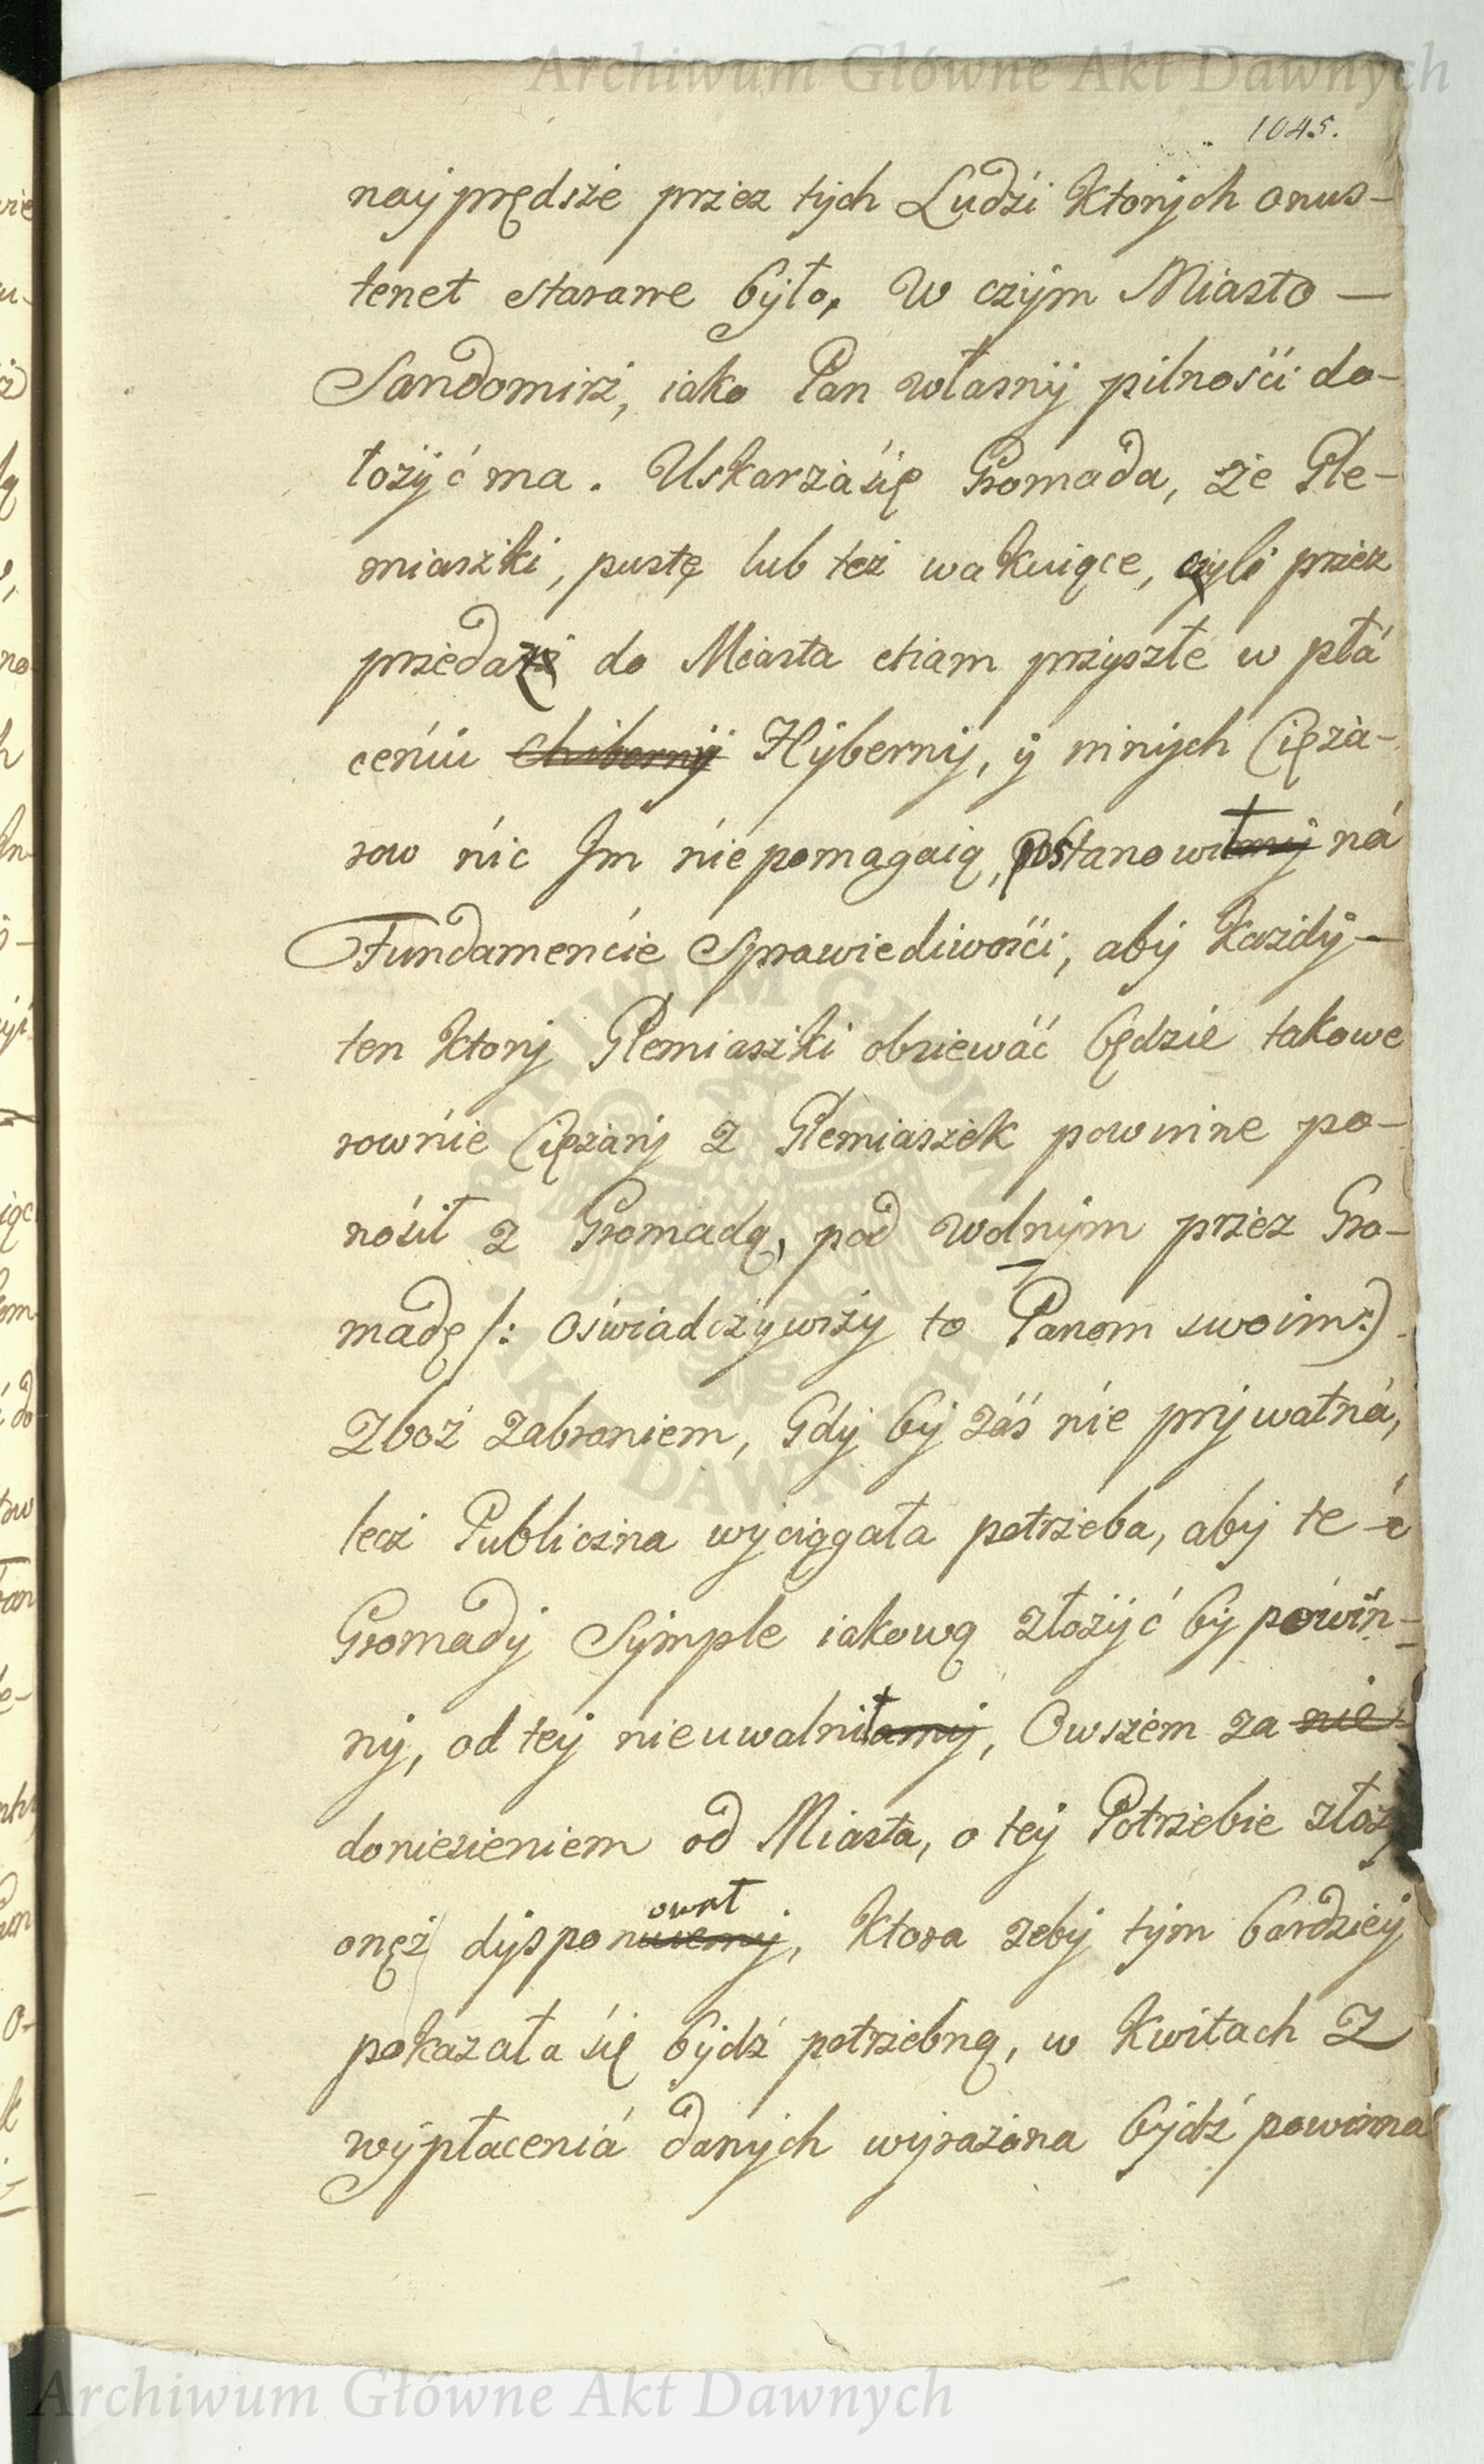 Archiwum Główne Akt Dawnych
1045.
nayprędsze przez tych Ludzi ktorych onus-
tenet staranie było, W czym Miasto —
Sandomirz, iako Pan własny pilnosci do-
łozyć ma. Uskarza się Gromada, ze Ple-
miaszki, pustę lub tez wakuiące, czyli przez
przedazi do Miasta etiam przyszłe w płá
ceniu Chiberny Hyberny, y innych Cięza-
row nic Im nie pomagaią, postanowiłmy ná
Fundamencie Sprawiedliwosci, aby kazdy —
ten ktory Plemiaszki obsiewáć będzie takowe
rownie Cięzary z Plemiaszek powinne po-
nosił z Gromadą, pod wolnym przez Gro-
madę /: oświadczywszy to Panom swoim :)
Zboz zabraniem, Gdy by záś nie prywatná,
lecz Publiczna wyciągała potrzeba, aby te
Gromady Symple iakową złozyć by powin-
ny, od tey nie uwalniłamy, Owszem za nie
doniesieniem od Miasta, o tey Potrzebie złoz
ował
onęz dysponuiemy, ktora zeby tym bardziey
pokazała się bydź potrzebną, w Kwitach z
wypłaceniá danych wyrazona bydź powinna
ARCHIWUM GŁÓWNE · AKT DAWNYCH ·
Archiwum Główne Akt Dawnych